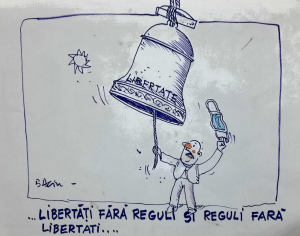 LIBERTATE
...LIBERTĂȚI FĂRĂ REGULI ȘI REGULI FARĂ
LIBERTATI....